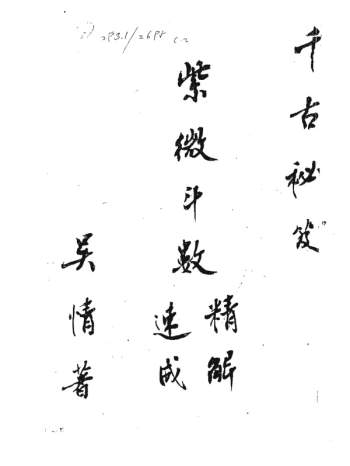 千古秘笈
紫微斗數
精解
速成
吳情著
293.1/2698 c.2